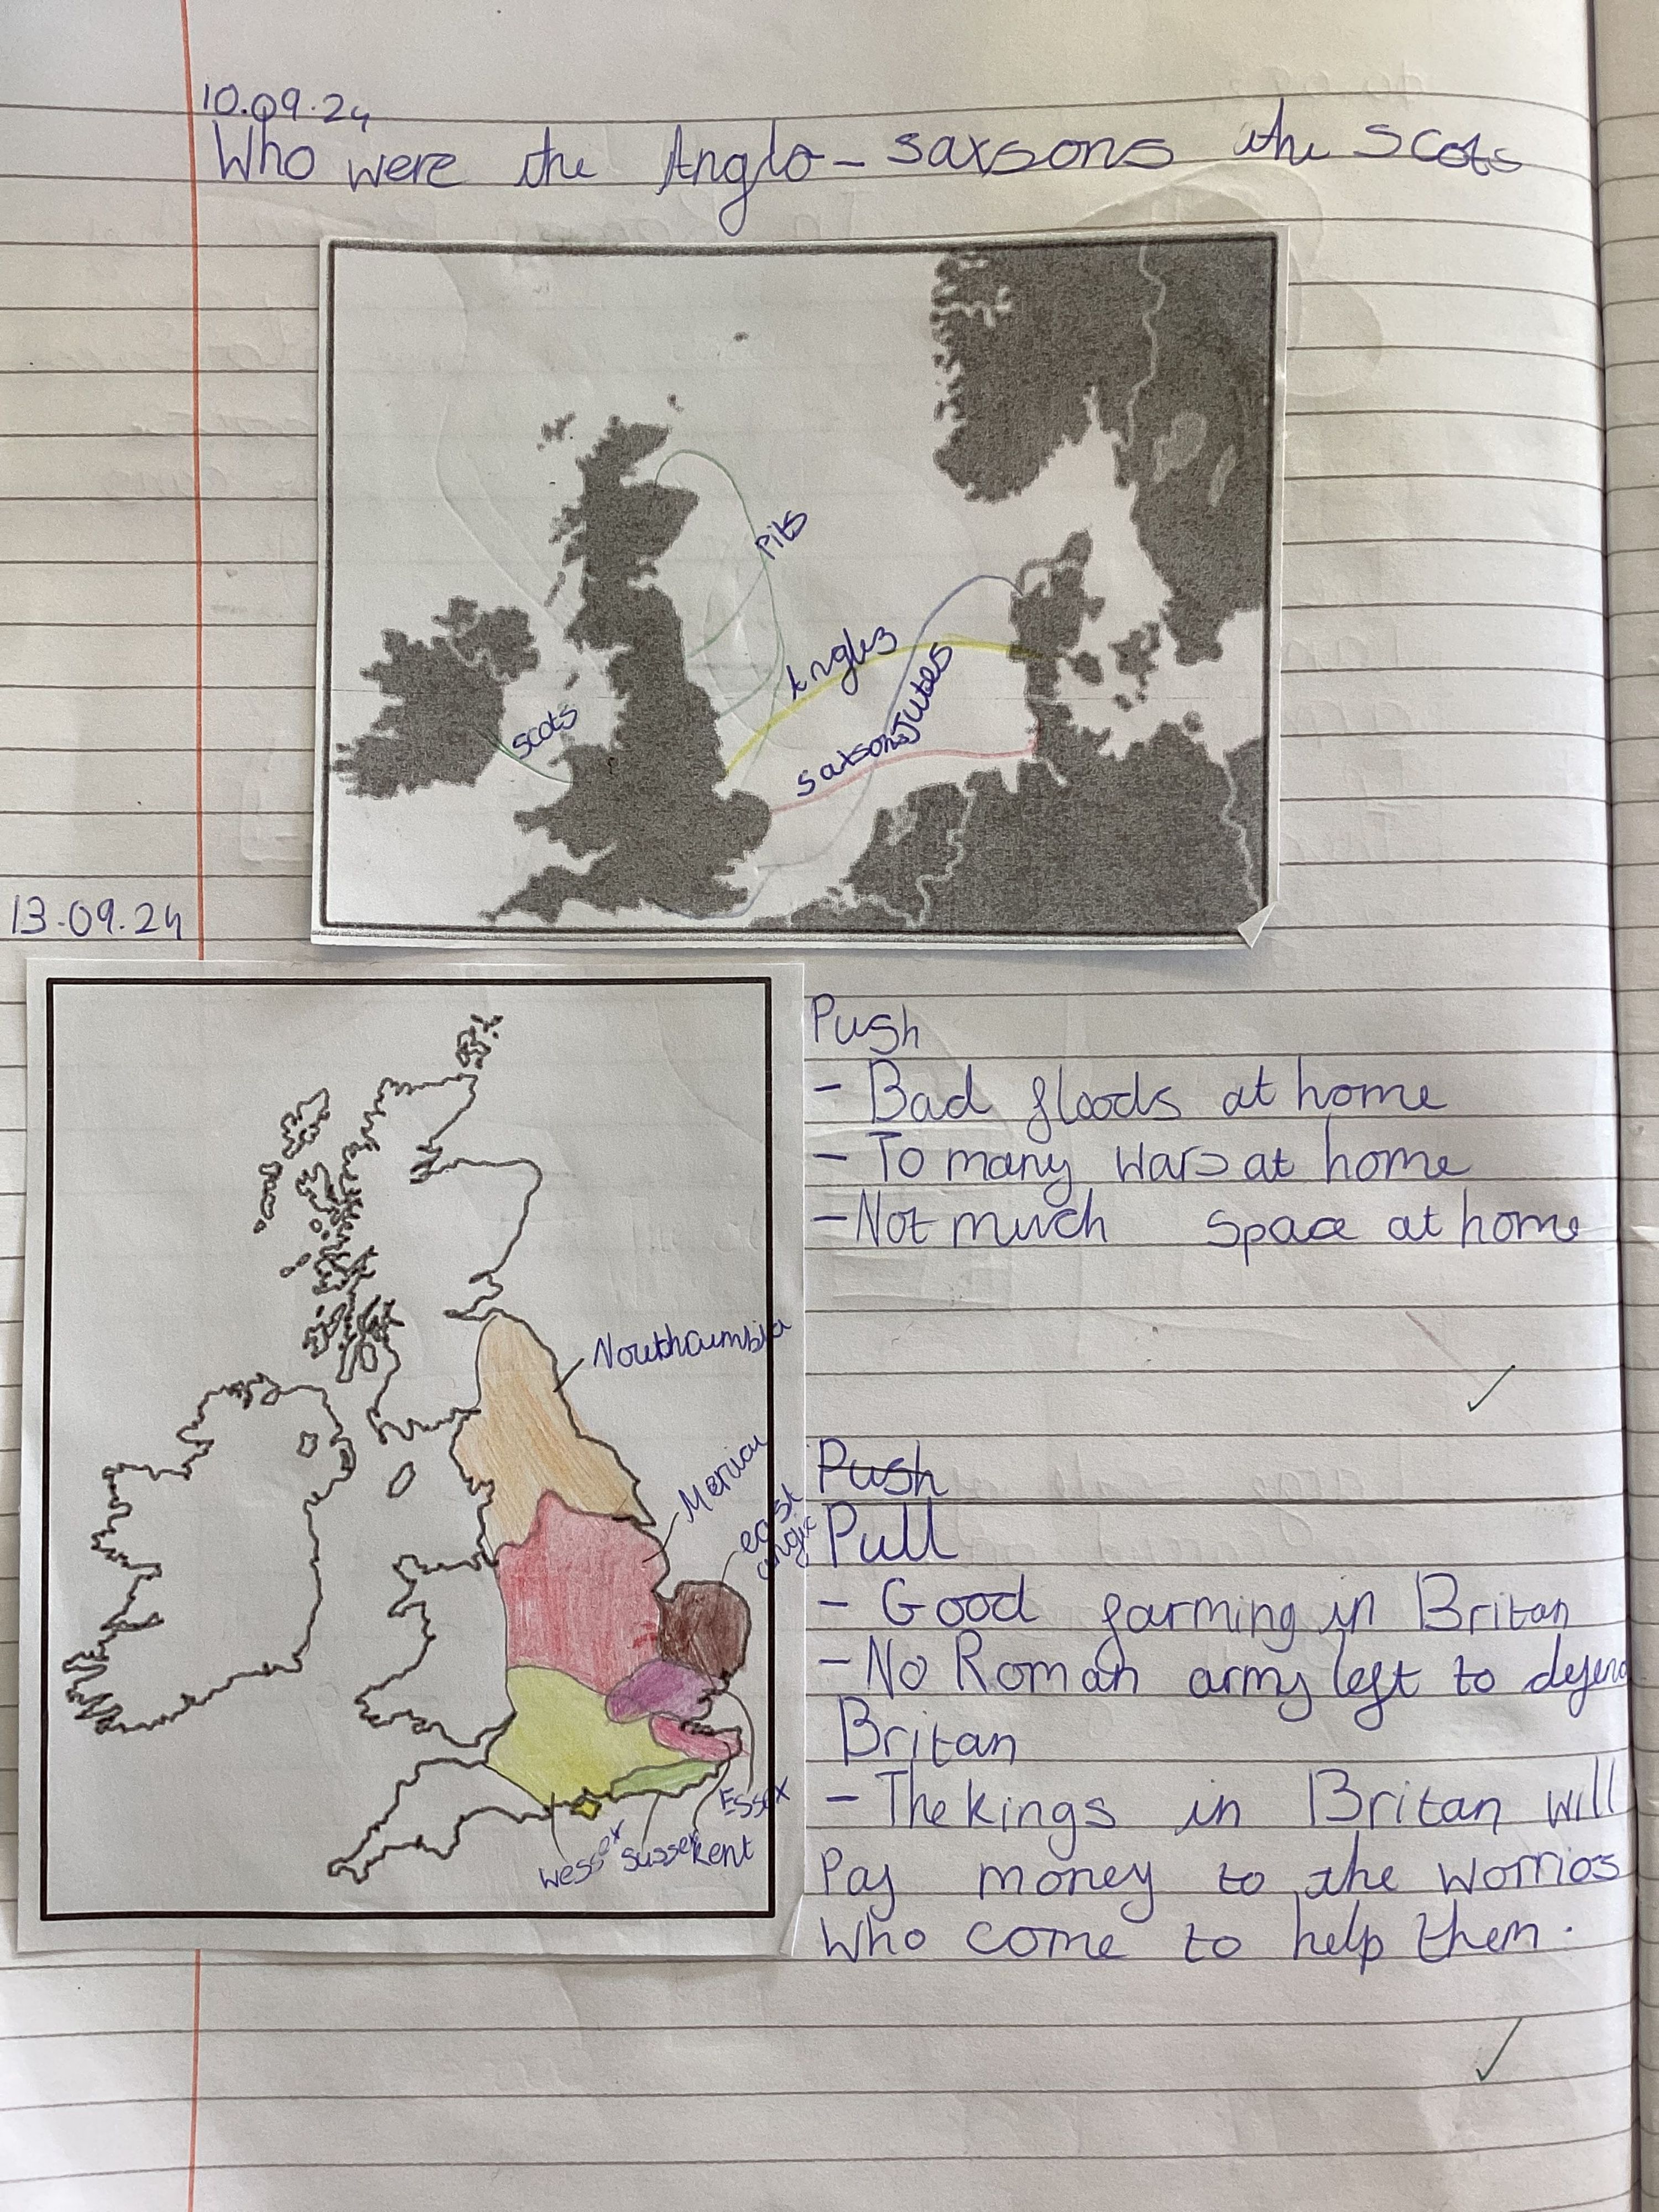 10.09.24
Who were the Anglo-saxsons the Scots
Pits
Angles
Jutes
Saxsons
Scots
13.09.24
Push
- Bad floods at home
- To many wars at home
- Not much space at home
Push
Pull
- Good farming in Britan
- No Roman army left to defend
Britan
- The kings in Britan will
Pay money to the worrios
who come to help them.
Northcumbia
east
anglia
Essex
Wessex
Sussex
Kent